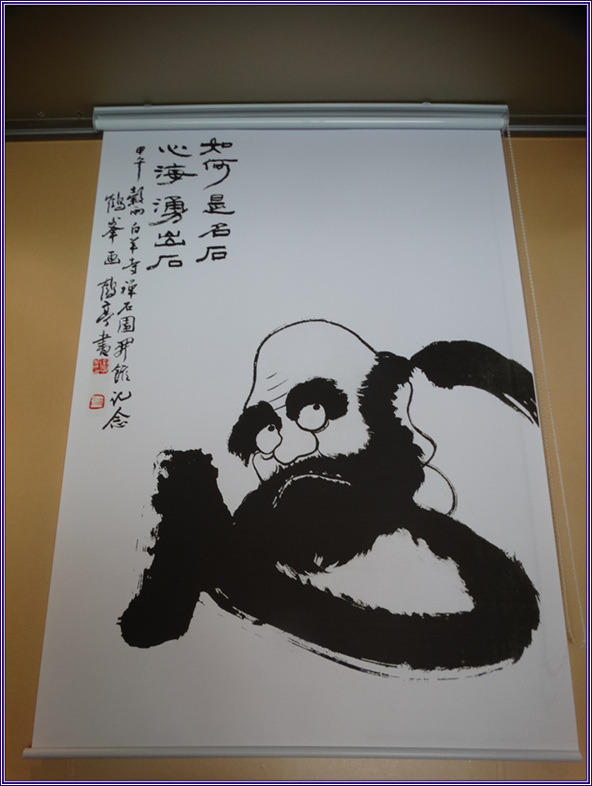 如何是名石
心海湧出石
甲午 穀雨 白羊寺禪石園開館記念
鶴峯画 鶴亭書